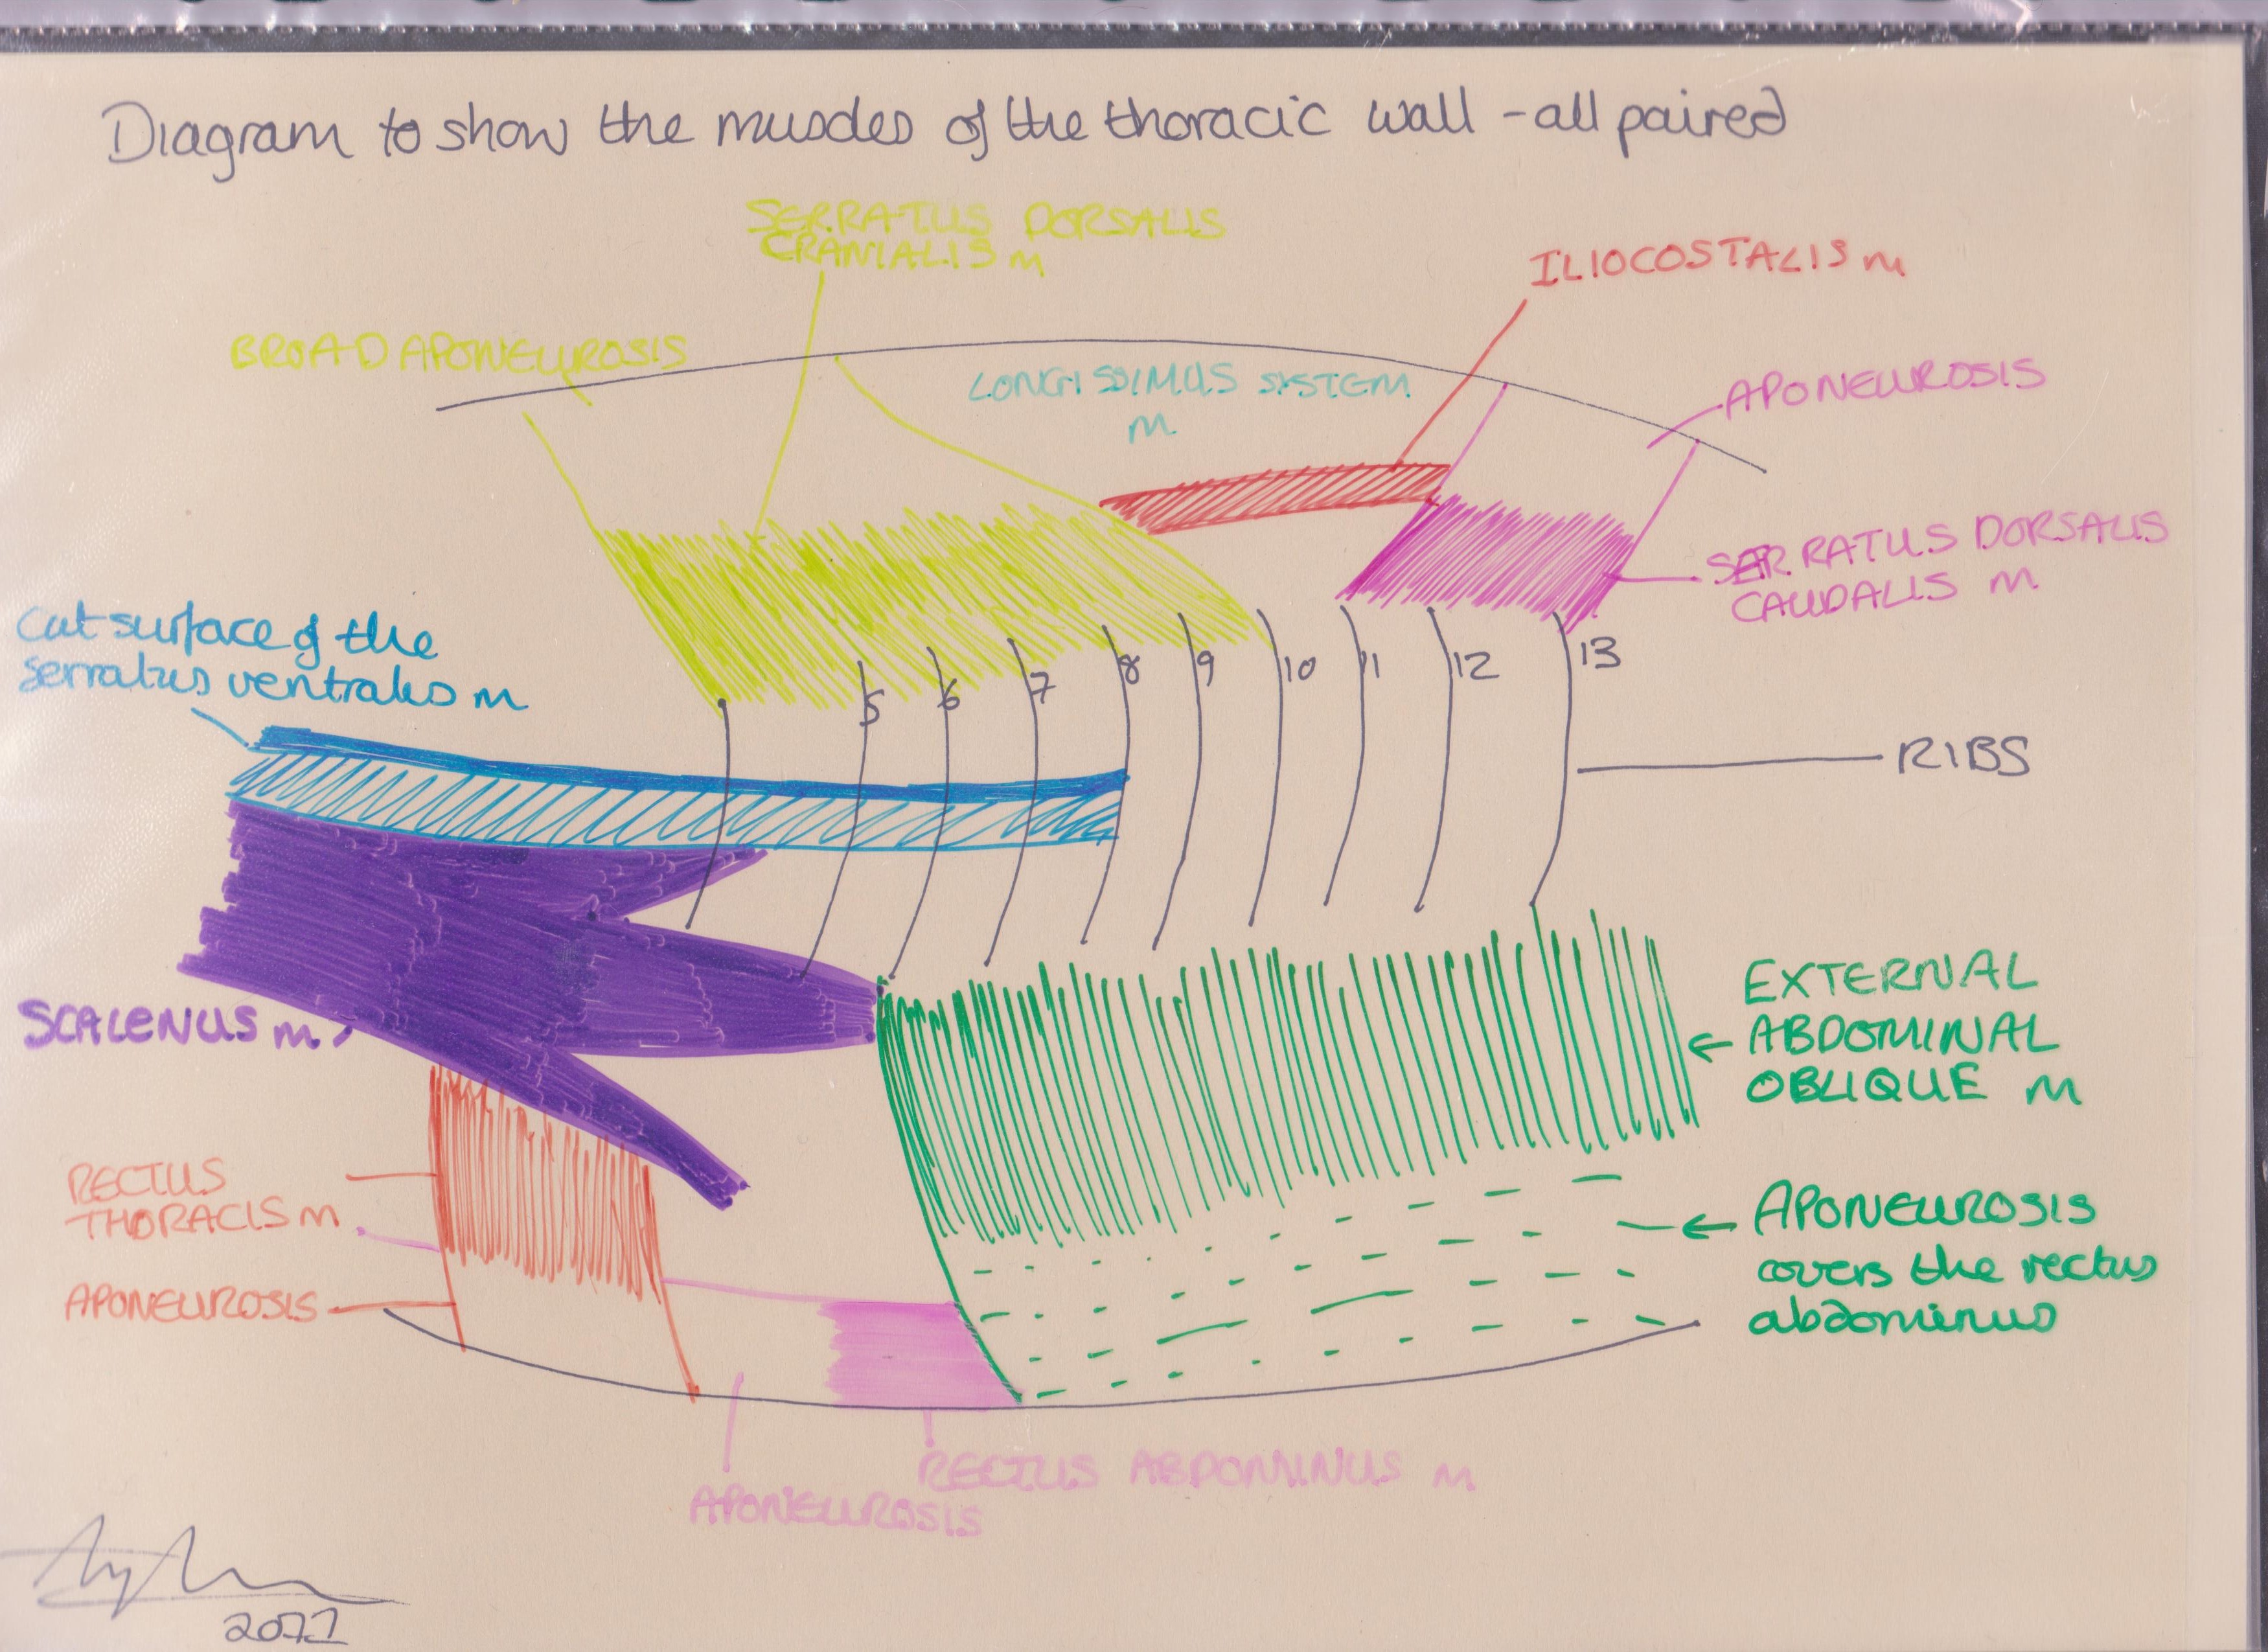 Diagram to show the muscles of the thoracic wall - all paired
SERRATUS DORSALIS
CRANIALIS m
ILIOCOSTALIS m
BROAD APONEUROSIS
LONGISSIMUS SYSTEM
m
APONEUROSIS
SERRATUS DORSALIS
CAUDALIS m
Cut surface of the
serratus ventralis m
5 6 7 8 9 10 11 12 13
RIBS
SCALENUS m
EXTERNAL
ABDOMINAL
OBLIQUE m
RECTUS
THORACIS m
APONEUROSIS
APONEUROSIS
covers the rectus
abdominus
RECTUS ABDOMINUS m
APONEUROSIS